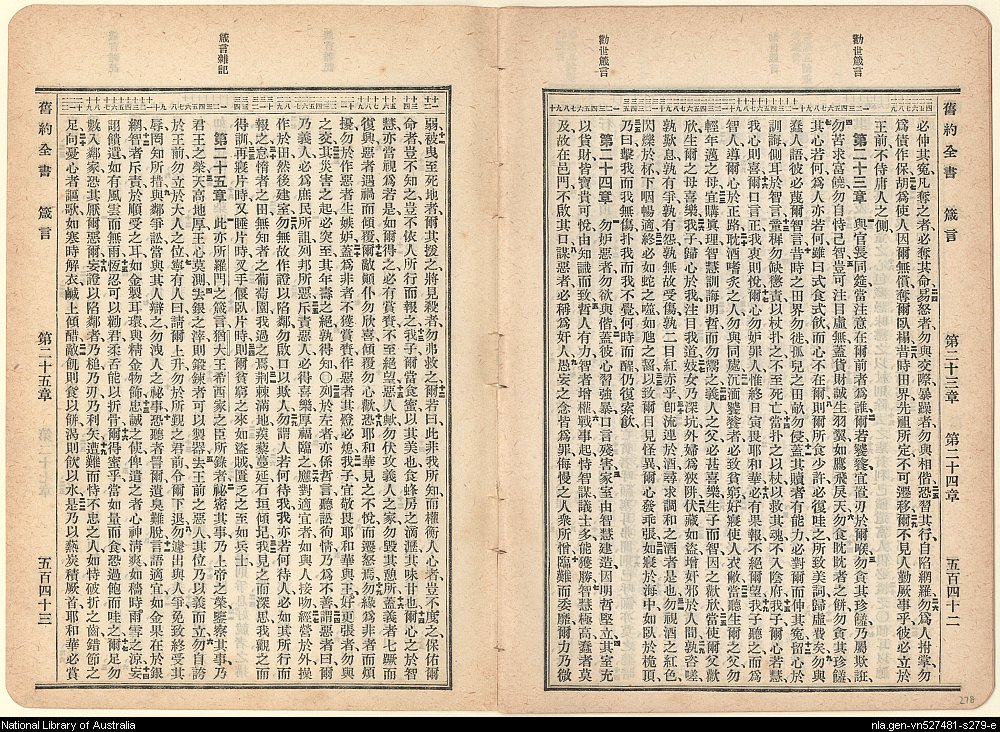 勸世箴言
勸世箴言
舊約全書 箴言 第二十三章 第二十四章 五百四十二
必伸其冤凡奪之者必奪其命易怒者勿與交際暴躁者勿與相偕恐習其行自陷網羅勿為人拊掌勿
為債作保胡為使人因爾無償奪爾臥榻昔時田界先祖所定不可遷移爾不見人勤厥事乎彼必立於
王前不侍庸人之側
第二十三章 與官長同筵當注意在爾前者為誰爾若饕餮宜置刃於爾喉勿食其珍饈乃屬欺誑
勿苦求富當恃己智豈可注目虛無蓋貨財誠生羽翼如鷹飛戾天勿食眈者之餅勿貪其珍饈
其心若何為人亦若何雖曰式食式飲而心不在爾則爾所食少許必復哇之所致美詞歸虛費矣勿與
蠢人語彼必蔑爾智言昔時之田界勿徙孤兒之田畝勿侵蓋其贖者有能力必對爾而伸其冤留心於
訓誨側耳於智言童稚勿缺懲責以杖扑之不至死亡當扑之以杖以救其魂不入陰府我子爾心若慧
我心則喜爾口言正我衷則悅爾心勿妒罪人惟終日寅畏耶和華必有果報不絕爾望我子聽之而
智人導爾心於正路耽酒嗜炙之人勿與同處沉湎饕餮者必致貧窮好寢使人衣敝當聽生爾之父勿
輕年邁之母宜購真理智慧訓誨明哲而勿鬻之義人之父必甚喜樂生子而智因之歡欣當使爾父歡
欣生爾之母喜樂我子歸心於我注目我道妓女乃深坑外婦為狹阱伏藏如盜增奸邪於人間孰咨嗟
孰歎息孰有爭孰有怨孰無故受傷孰二目紅赤乎即流連於酒尋求調和之酒者是也勿視酒之紅色
閃爍於杯下咽暢適終必如蛇之噬如虺之齧以致爾目見怪異爾心發乖張如寢於海中如臥於桅頂
乃曰擊我而我無傷扑我而我不覺何時而醒仍復索飲
第二十四章 勿妒惡者勿欲與偕蓋彼心習強暴口言殘害家室由智慧建造因明哲堅立其室充
以貨財皆寶貴可悅由知識而致有智者有力有識者增權戰事起恃智謀議士多能獲勝智慧極高蠢者莫
及故在邑門不啟其口謀惡者必稱為奸人愚妄之念皆為罪侮慢之人衆所憎臨難而委靡爾力乃微
278
箴言雜記
舊約全書 箴言 第二十五章 五百四十三
弱被曳至死地者爾其援之將見殺者勿弗救之爾若曰此非我所知而權衡人心者豈不度之保佑爾
命者豈不知之豈不依人所行而報之我子爾當食蜜以其美也食蜂房之滴瀝其味甘也爾心之於智
慧亦當視為若是如爾得之必有賞賚不至絕望惡人歟勿伏攻義人之家勿毀其憩所蓋義者七蹶而
復興惡者遇禍而傾覆爾敵顛仆勿欣喜傾覆勿心歡恐耶和華見之不悅而遷怒焉勿緣為非者而煩
擾勿於作惡者生嫉妒蓋為非者不獲賞賚作惡者其燈必熄我子宜敬畏耶和華與王好更張者勿與
之交其災害之起必突至其年壽之絕孰得知〇列於左者亦係哲言聽訟徇情乃為不善謂惡者曰爾
乃義人必為庶民所詛列邦所惡惟斥責惡人必得喜樂厚福臨之應對適宜者如與人接吻經營於外操
作於田然後建室勿無故作證以陷鄰勿啟口以欺人勿謂人若何待我我亦若何待人必如其所行而
報之怠惰者之田無知者之葡萄園我過之焉荊棘滿地蒺藜蔓延石垣傾圮我見之而深思我觀之而
得訓再寢片時又睡片時叉手偃臥片時則爾貧窮之來如盜賊匱乏之至如兵士
第二十五章 此亦所羅門之箴言猶大王希西家之臣所錄者秘密其事乃上帝之榮鑒察其事乃
君王之榮天高地厚王心莫測去銀之滓則鍛鍊者可以製器去王前之惡人其位乃以義而立勿自誇
於王前勿立於大人之位寧有人曰請爾上升勿於所覲之君前令爾下退勿遽出與人爭免致終受其
辱罔知所措與鄰爭訟當與其人辯之勿洩人之秘事恐聽者詈爾遺臭難脫言語適宜如金果在於銀
網智者斥責於順受之耳如金製耳環與精金物飾忠誠之使俾遣之者心神清爽如穡時雨雪之涼妄
詡饋遺如有風雲而無雨恆忍可以勸君柔舌能以折骨爾得蜜乎當如量而食恐過飽而哇之爾足勿
數入鄰家恐其厭爾惡爾妄證以陷鄰者乃槌乃刃乃利矢遭難而恃不忠之人如恃破折之齒錯節之
足向憂心者謳歌如寒時解衣鹹上傾醋敵飢則食以餅渴則飲以水是乃以爇炭積厥首耶和華必賞
National Library of Australia
nla.gen-vn527481-s279-e